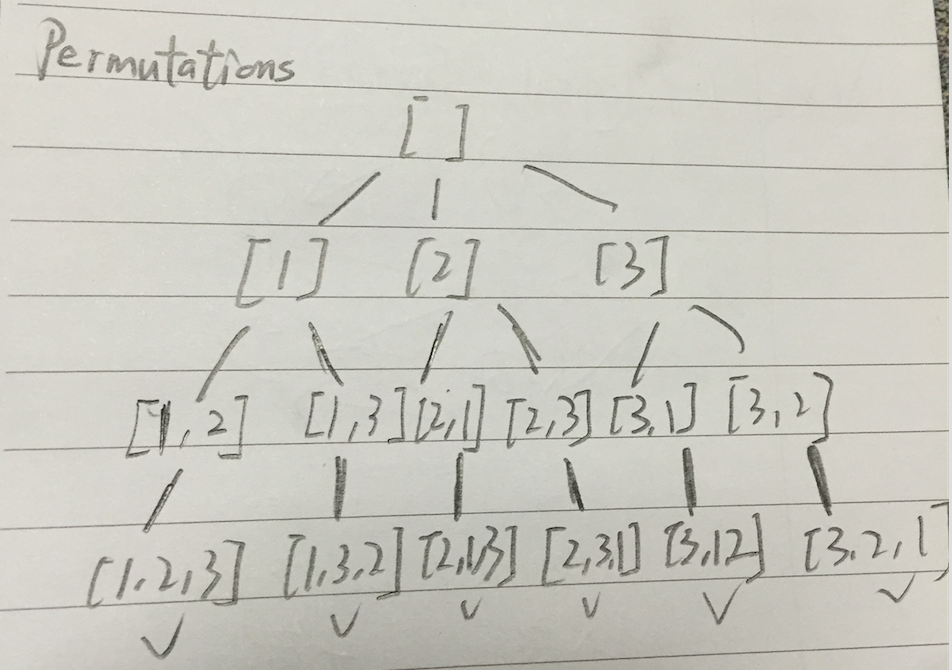 Permutations
[ ]
[1] [2] [3]
[1,2] [1,3] [2,1] [2,3] [3,1] [3,2]
[1,2,3] [1,3,2] [2,1,3] [2,3,1] [3,12] [3,2,1]